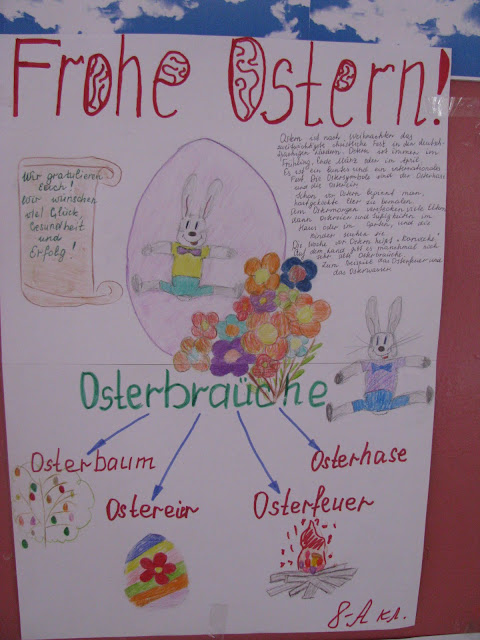 Frohe Ostern!
Wir gratulieren
Euch!
Wir wünschen
viel Glück,
Gesundheit
und
Erfolg!
Ostern ist nach Weihnachten das
christliche Fest in den deutsch-
Ländern. Ostern ist immer im
Frühling, Ende März oder im April.
Es ist ein buntes und ein internationales
Fest. Die Ostersymbole sind der Osterhase
und die Ostereier.
Schon vor Ostern beginnt man,
hartgekochte Eier zu bemalen.
Am Ostermorgen verstecken viele Eltern
dann Ostereier und Süßigkeiten im
Haus oder im Garten, und die
Kinder suchen sie.
Die Woche vor Ostern heißt
Auf dem Land gibt es manchmal noch
sehr alte Osterbräuche.
Zum Beispiel das Osterfeuer und
das Osterwasser.
Osterbräuche
Osterbaum
Ostereier
Osterfeuer
Osterhase
8-A кл.